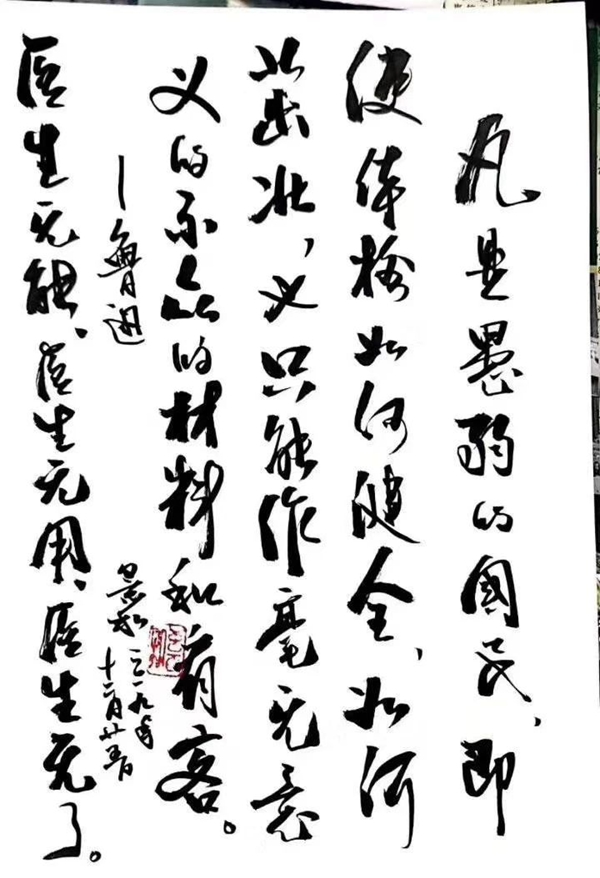 凡是愚弱的國民，即
使体格如何健全、如何
茁壮，也只能作毫无意
义的示众的材料和看客。
—鲁迅
医生无能、医生无用、医生无了。
景松
二〇一九年
十二月廿五日